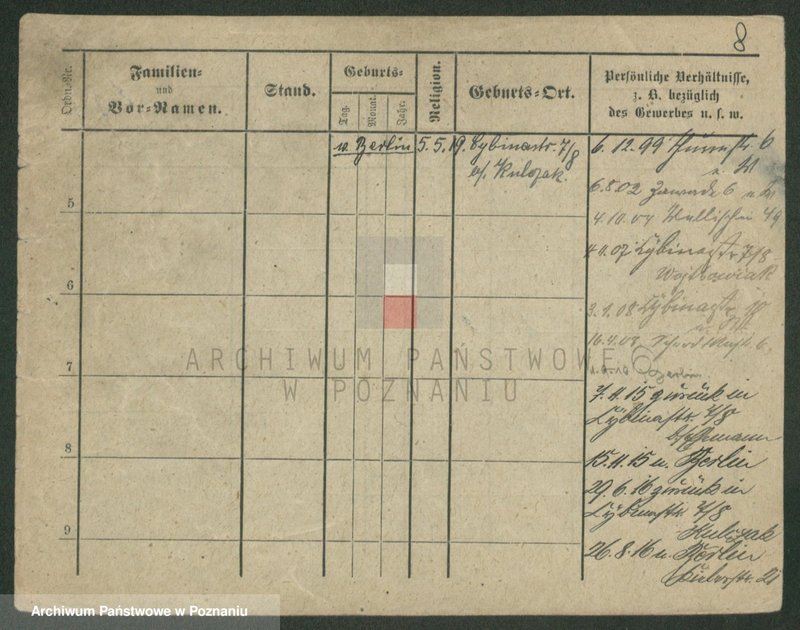 8
Ordn.-Nr.
Familien-
und
Vor-Namen.
Stand.
Geburts-
Tag.
Monat.
Jahr.
Religion.
Geburts-Ort.
Persönliche Verhältnisse,
z. B. bezüglich
des Gewerbes u. s. w.
n. Berlin 5. 5. 19. Cybinastr. 7/8
b/. Kulozak.
6. 12. 99
6. 8. 02 Zawade 6
4. 10. 04 Wallischei 49
4. 1. 07 Cybinastr 7/8
Wojtkowiak
3. 1. 08 Cybinastr
16. 4. 08
Berlin
7. 4. 15 zurück in
Cybinastr. 7/8
15. 11. 15 n. Berlin
29. 6. 16 zurück in
Cybinastr. 7/8
Kulozak
26. 8. 16 n. Berlin
5
6
7
8
9
ARCHIWUM PAŃSTWOWE
W POZNANIU
Archiwum Państwowe w Poznaniu